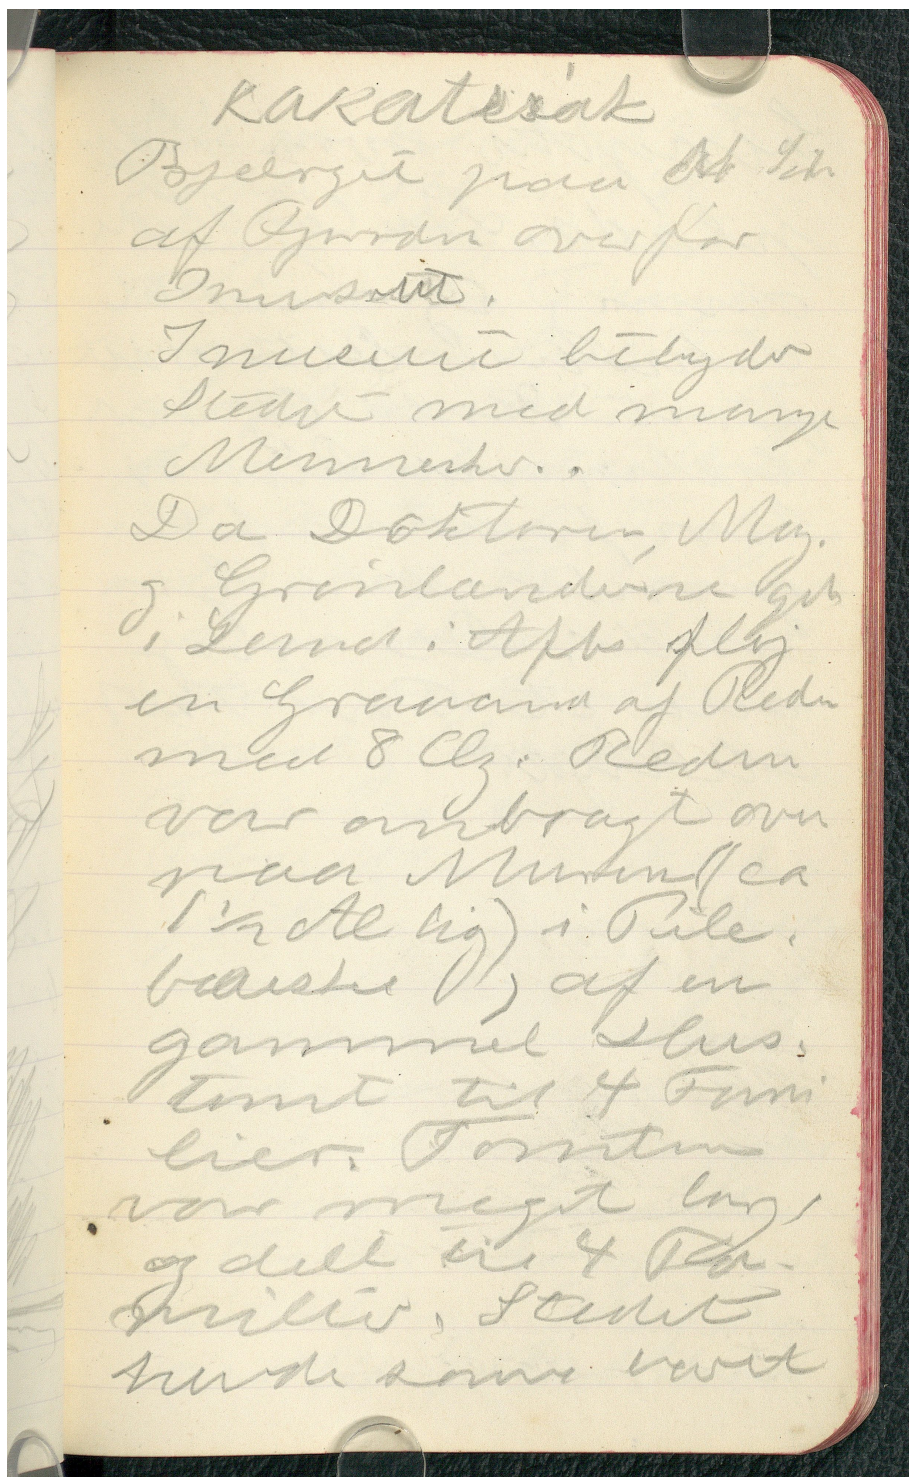 Kakatsiak
Bjælrget paa
af Fjorden overfor
Inusuit.
Inusuit betyder
Stedet med mange
Mennesker.
Da Doktoren, Mag.
og Grønlænderne gik
i Land i Aftes fløj
en Graaand af Reden
med 8 Æg. Reden
var anbragt oven
paa Muren (ca
1½ Al høj) i Pile-
buske, af en
gammel Hus-
tomt til 4 Fami
lier. Tomten
var meget lang,
og delt til 4 Fa-
milier. Stedet
havde været